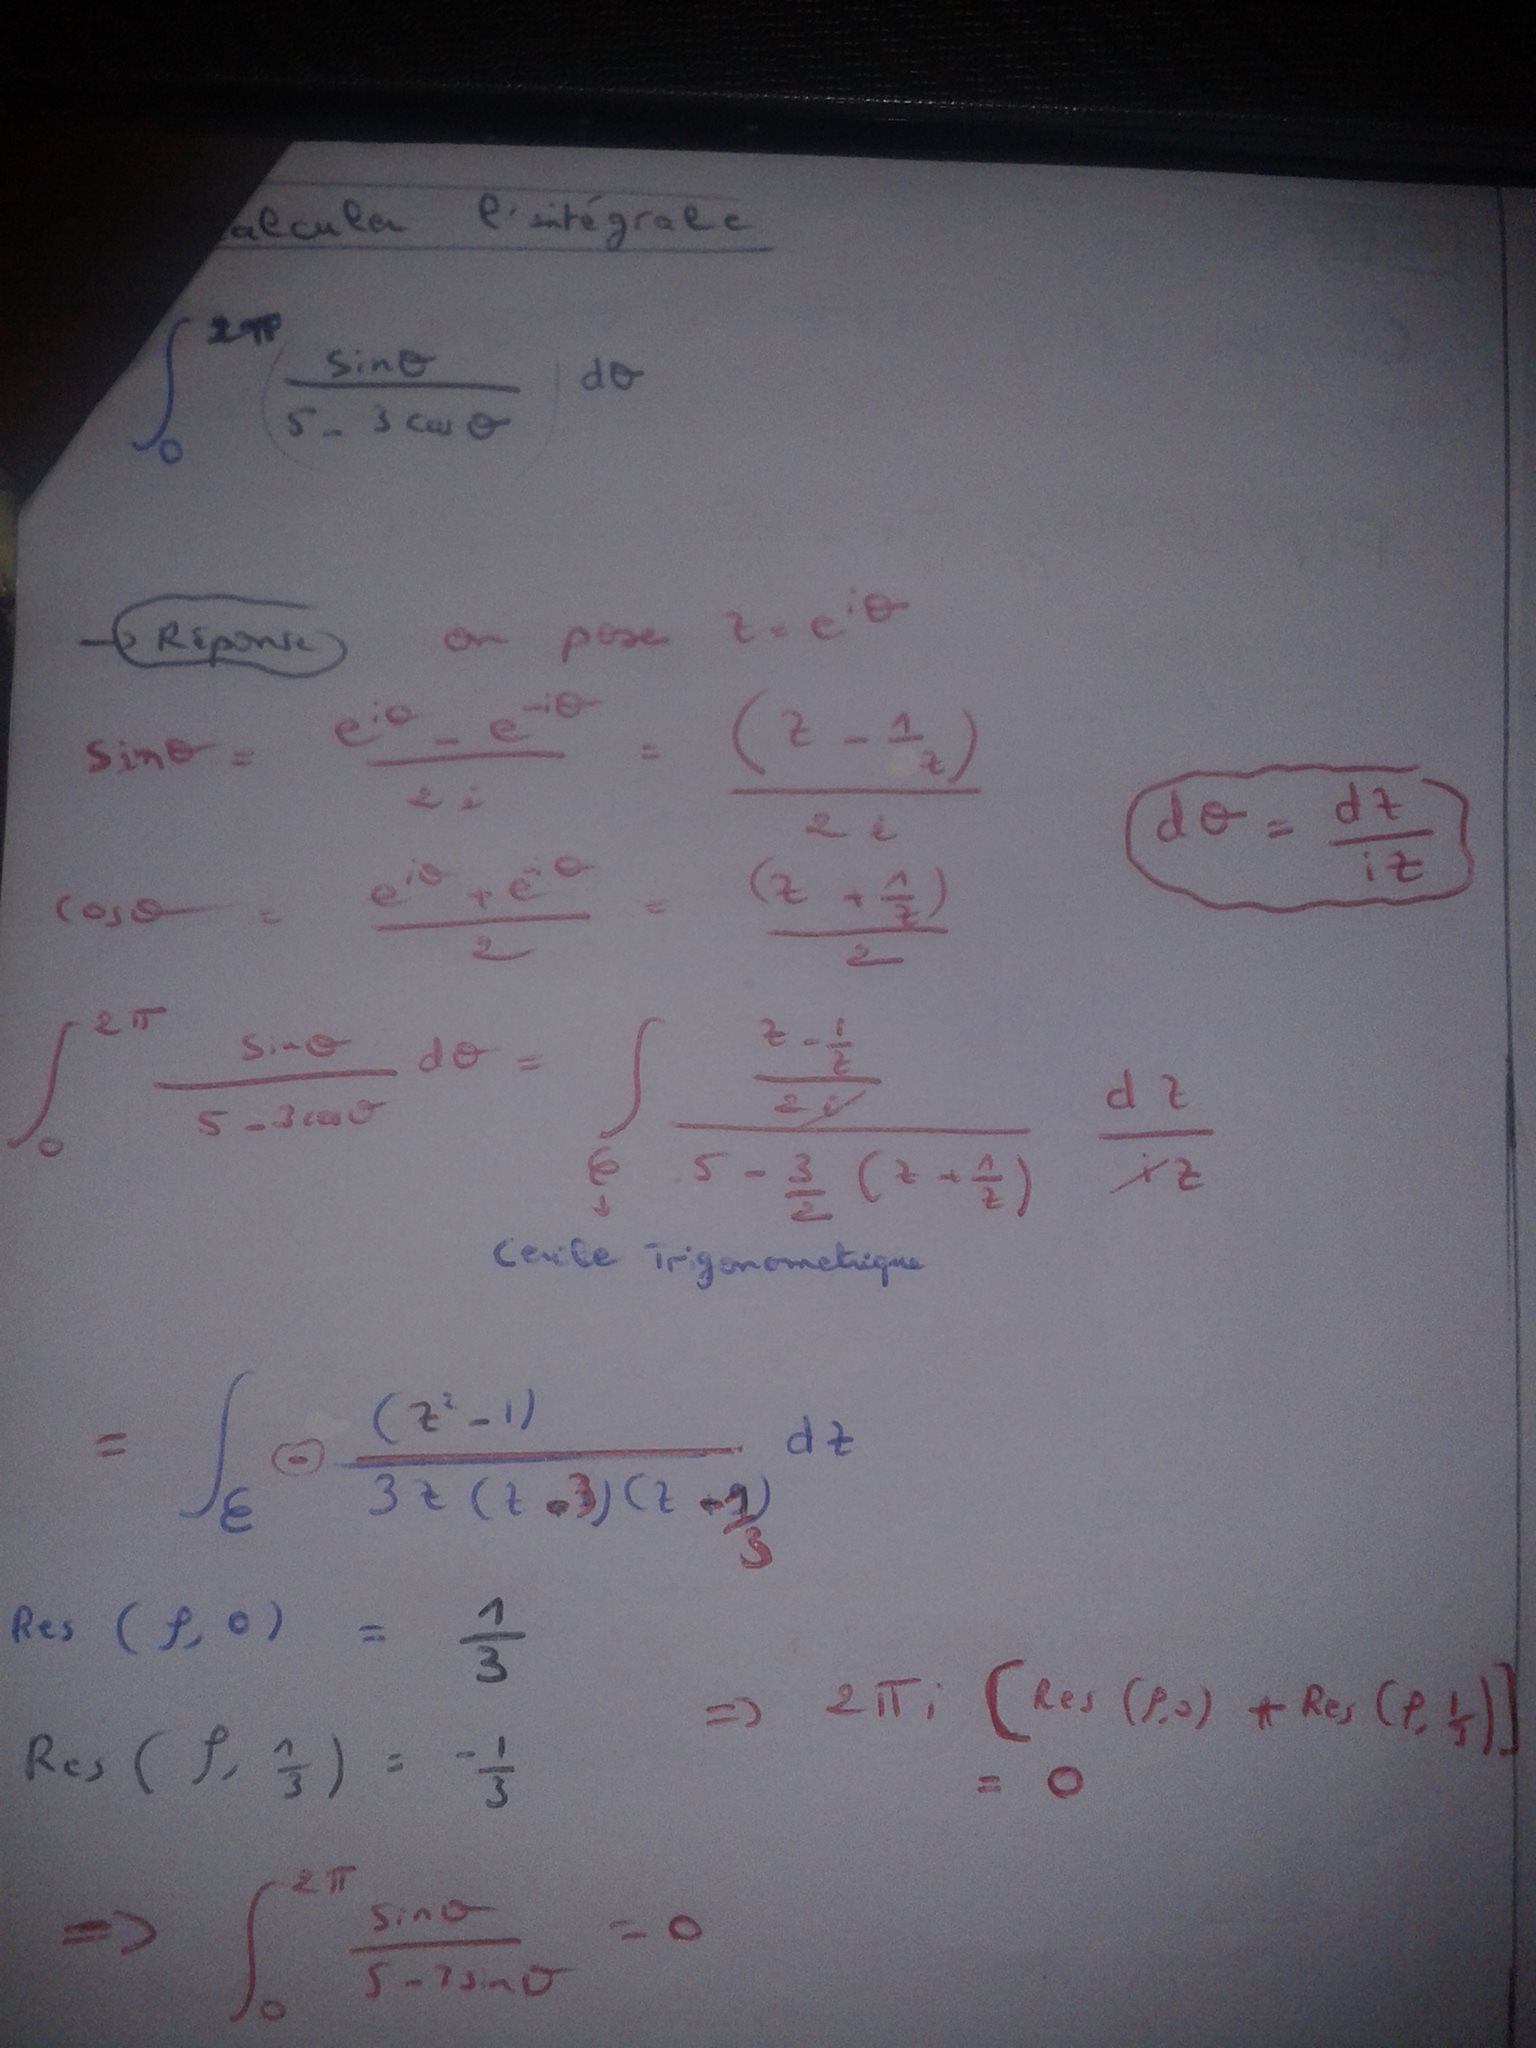 alculer l'intégrale
∫₀^2π ( sinθ / (5 - 3 cos θ) ) dθ
→ Réponse on pose z = e^iθ
sinθ = (e^iθ - e^-iθ) / 2i = (z - 1/z) / 2i
dθ = dz / iz
cosθ = (e^iθ + e^-iθ) / 2 = (z + 1/z) / 2
∫₀^2π sinθ / (5 - 3cosθ) dθ = ∫_C ((z - 1/z) / 2i) / (5 - 3/2 (z + 1/z)) dz / iz
Cercle Trigonometrique
= ∫_C - (z² - 1) / (3z (z - 3)(z - 1/3)) dz
Res (f, 0) = 1/3
Res (f, 1/3) = -1/3
=> 2πi [Res (f, 0) + Res (f, 1/3)]
= 0
=> ∫₀^2π sinθ / (5 - 3sinθ) = 0